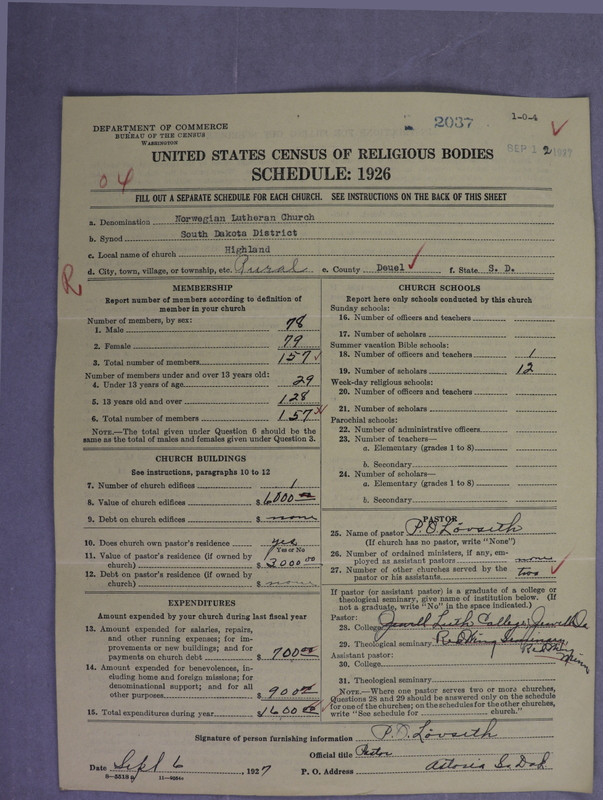 2037
1-0-4
DEPARTMENT OF COMMERCE
BUREAU OF THE CENSUS
WASHINGTON
SEP 12 1927
UNITED STATES CENSUS OF RELIGIOUS BODIES
SCHEDULE: 1926
04
FILL OUT A SEPARATE SCHEDULE FOR EACH CHURCH. SEE INSTRUCTIONS ON THE BACK OF THIS SHEET
a. Denomination Norwegian Lutheran Church
b. Synod South Dakota District
c. Local name of church Highland
d. City, town, village, or township, etc. Rural e. County Deuel f. State S. D.
R
MEMBERSHIP
Report number of members according to definition of
member in your church
Number of members, by sex:
1. Male 78
2. Female 79
3. Total number of members 157
Number of members under and over 13 years old:
4. Under 13 years of age 29
5. 13 years old and over 128
6. Total number of members 157
NOTE.—The total given under Question 6 should be
same as the total of males and females given under Question 3.
CHURCH BUILDINGS
See instructions, paragraphs 10 to 12
7. Number of church edifices 1
8. Value of church edifices $ 6000 00
9. Debt on church edifices $ none
10. Does church own pastor's residence? yes
Yes or No
11. Value of pastor's residence (if owned by
church) $ 3000 00
12. Debt on pastor's residence (if owned by
church) $ none
EXPENDITURES
Amount expended by your church during last fiscal year
13. Amount expended for salaries, repairs,
and other running expenses; for im-
provements or new buildings; and for
payments on church debt $ 700 00
14. Amount expended for benevolences, in-
cluding home and foreign missions; for
denominational support; and for all
other purposes $ 900 00
15. Total expenditures during year $ 1600 00
CHURCH SCHOOLS
Report here only schools conducted by this church
Sunday schools:
16. Number of officers and teachers
17. Number of scholars
Summer vacation Bible schools:
18. Number of officers and teachers 1
19. Number of scholars 12
Week-day religious schools:
20. Number of officers and teachers
21. Number of scholars
Parochial schools:
22. Number of administrative officers
23. Number of teachers—
a. Elementary (grades 1 to 8)
b. Secondary
24. Number of scholars—
a. Elementary (grades 1 to 8)
b. Secondary
PASTOR
25. Name of pastor P. O. Lövseth
(If church has no pastor, write "None")
26. Number of ordained ministers, if any, em-
ployed as assistant pastors none
27. Number of other churches served by the
pastor or his assistants two
If pastor (or assistant pastor) is a graduate of a college or
theological seminary, give name of institution below. (If
not a graduate, write "No" in the space indicated.)
Pastor:
28. College Jewell Luth College, Jewell Ia
29. Theological seminary Red Wing Seminary
Red Wing
Minn
Assistant pastor:
30. College
31. Theological seminary
NOTE.—Where one pastor serves two or more churches,
Questions 28 and 29 should be answered only on the schedule
for one of the churches; on the schedules for the other churches,
write "See schedule for church."
Signature of person furnishing information P. O. Lövseth
Official title Pastor
Date Sept 6, 1927 P. O. Address Astoria So Dak